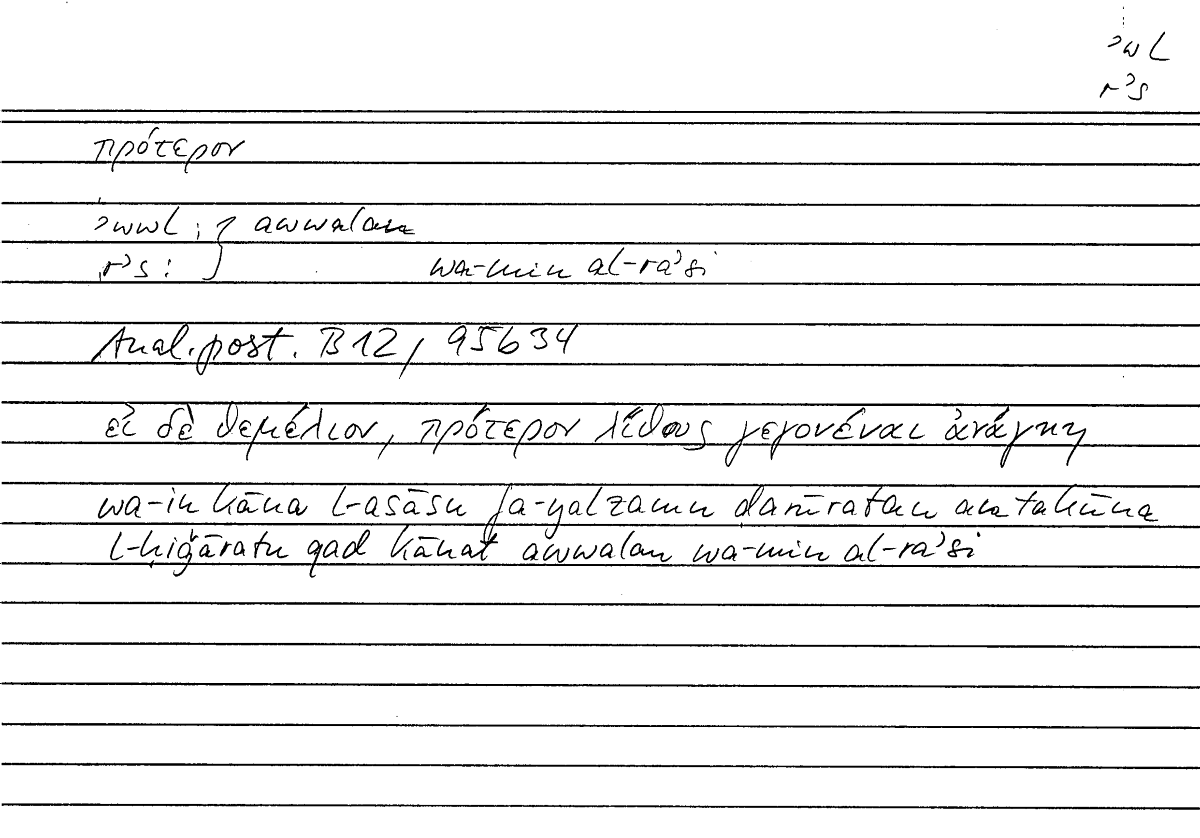 ʾwl
rʾs
πρότερον
ʾwwl ; } awwalan
rʾs : } wa-min al-raʾsi
Anal. post. B12, 95b34
εἰ δὲ θεμέλιον, πρότερον λίθους γεγονέναι ἀνάγκη
wa-in kāna l-asāsu fa-yalzamu ḍarūratan an takūna
l-ḥiǧāratu qad kānat awwalan wa-min al-raʾsi